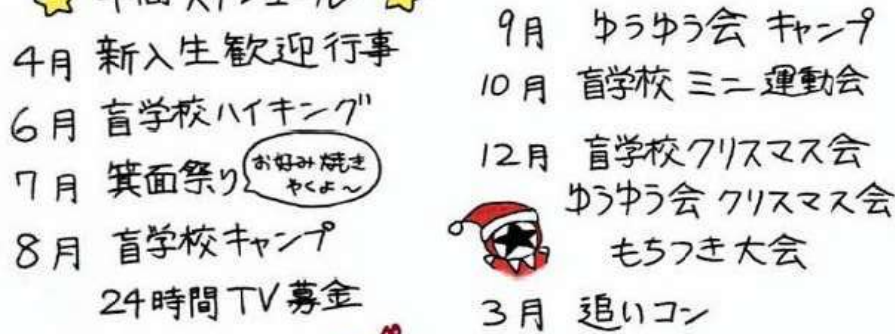 4月 新入生歓迎行事
6月 盲学校ハイキング
7月 箕面祭り
お好み焼き
やくよ～
8月 盲学校キャンプ
24時間TV募金
9月 ゆうゆう会 キャンプ
10月 盲学校 ミニ運動会
12月 盲学校クリスマス会
ゆうゆう会 クリスマス会
もちつき大会
3月 追いコン